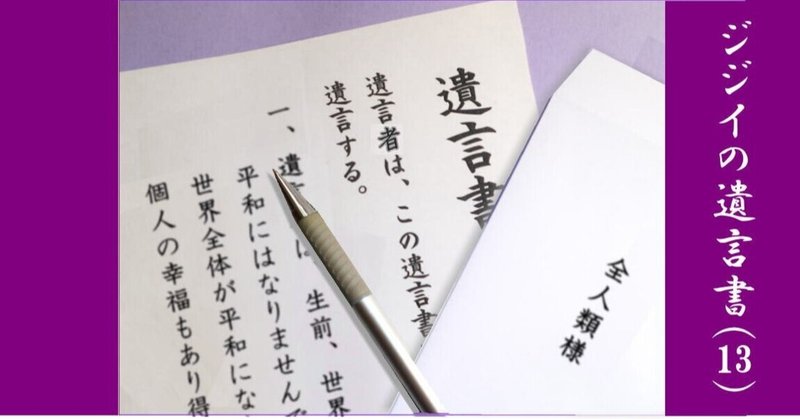 ジジイの遺言書(13)
全人類様
遺言書
遺言者は、この遺言書
遺言する。
一、遺 は 生前、世界
平和にはなりませんで
世界全体が平和にな
個人の幸福もあり得